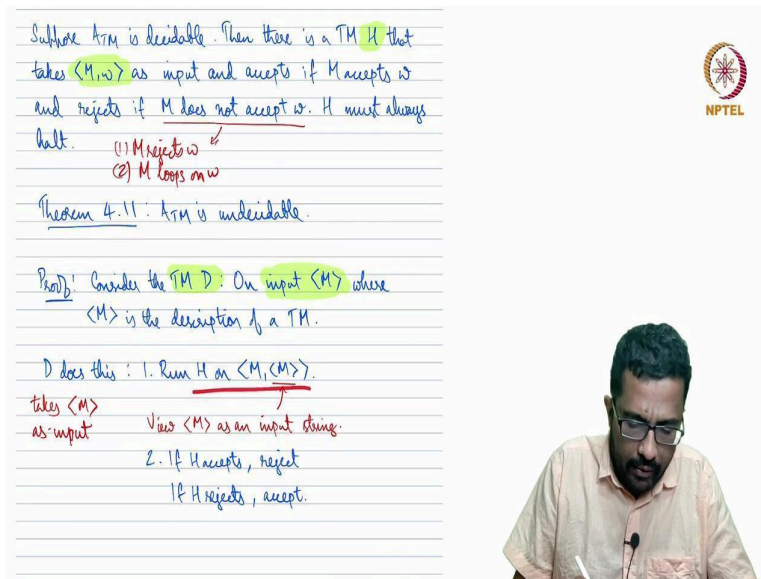 Suppose ATM is decidable. Then there is a TM H that
takes <M,w> as input and accepts if M accepts w
and rejects if M does not accept w. H must always
halt.
(1) M rejects w
(2) M loops on w
Theorem 4.11: ATM is undecidable.
Proof: Consider the TM D: On input <M> where
<M> is the description of a TM.
D does this: 1. Run H on <M, <M>>.
takes <M>
as input
View <M> as an input string.
2. If H accepts, reject
If H rejects, accept.
NPTEL